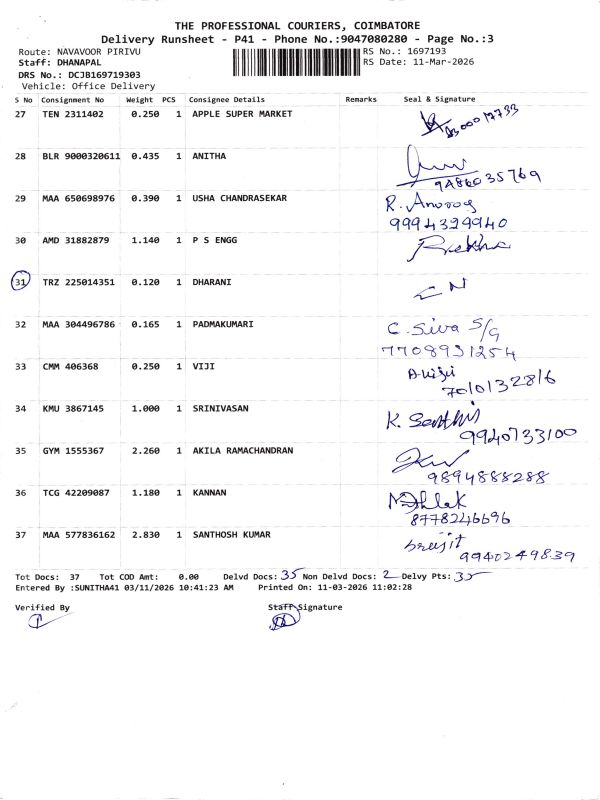 THE PROFESSIONAL COURIERS, COIMBATORE
Delivery Runsheet - P41 - Phone No.:9047080280 - Page No.:3
Route: NAVAVOOR PIRIVU RS No.: 1697193
Staff: DHANAPAL RS Date: 11-Mar-2026
DRS No.: DCJB169719303
Vehicle: Office Delivery
S No Consignment No Weight PCS Consignee Details Remarks Seal & Signature
27 TEN 2311402 0.250 1 APPLE SUPER MARKET
28 BLR 9000320611 0.435 1 ANITHA
9486035769
29 MAA 650698976 0.390 1 USHA CHANDRASEKAR R.
9994329940
30 AMD 31882879 1.140 1 P S ENGG Rekha
31 TRZ 225014351 0.120 1 DHARANI
32 MAA 304496786 0.165 1 PADMAKUMARI C. Siva S/G
7708931254
33 CMM 406368 0.250 1 VIJI
7010132816
34 KMU 3867145 1.000 1 SRINIVASAN K. Senthil
9940733100
35 GYM 1555367 2.260 1 AKILA RAMACHANDRAN
9894888288
36 TCG 42209087 1.180 1 KANNAN
8778246696
37 MAA 577836162 2.830 1 SANTHOSH KUMAR
9940249839
Tot Docs: 37 Tot COD Amt: 0.00 Delvd Docs: 35 Non Delvd Docs: 2 Delvy Pts: 35
Entered By :SUNITHA41 03/11/2026 10:41:23 AM Printed On: 11-03-2026 11:02:28
Verified By Staff Signature